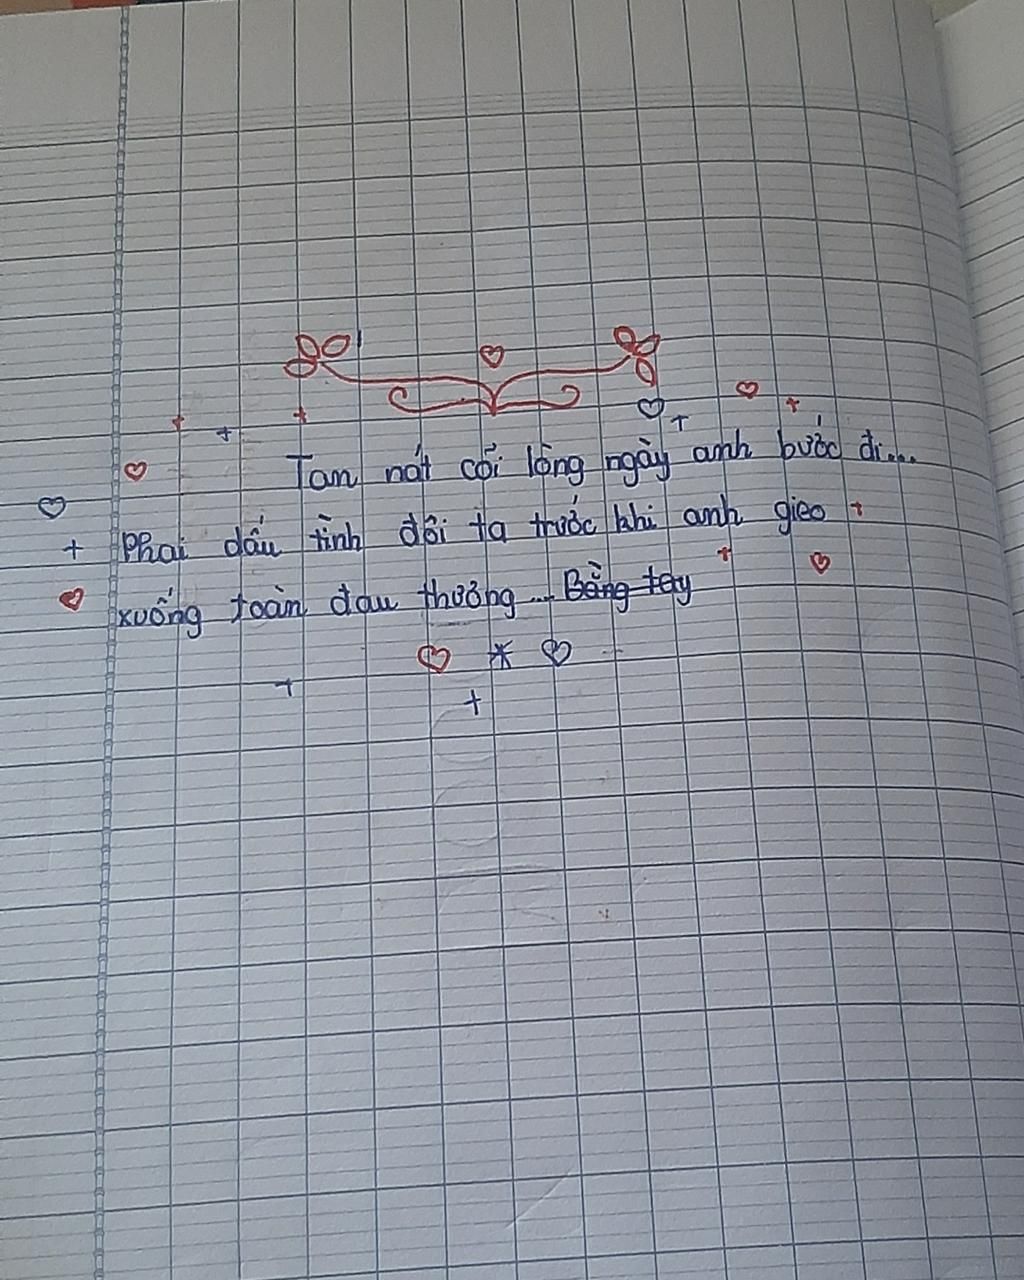 Tan nát cõi lòng ngày anh bước đi...
Phai dấu tình đôi ta trước khi anh gieo
xuống toàn đau thương... Bằng tay